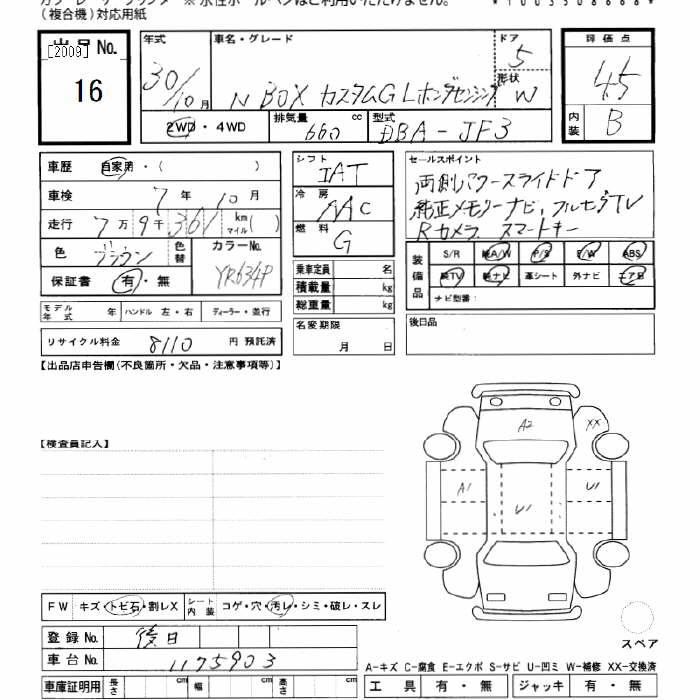 (複合機)対応用紙
出品 No.
[2009]
16
年式
30/10 月
車名・グレード
N BOX カスタムG Lホンダセンシング
ドア
5
形状
W
評価点
4.5
内装
B
2WD・4WD
排気量 660 cc
型式
DBA-JF3
車歴 自家用・( )
車検 7 年 10 月
走行 7 万 9 千 361 km マイル( )
色 ブラウン
色替
カラーNo.
YR634P
保証書 有・無
シフト
IAT
冷房
AAC
燃料
G
乗車定員 名
積載量 kg
総重量 kg
セールスポイント
両側パワースライドドア
純正メモリーナビ、フルセグTV
Rカメラ スマートキー
装備品
S/R 純A/W P/S P/W ABS
純TV 純ナビ 革シート 外ナビ エアB
ナビ型番:
モデル年式 年 ハンドル 左・右 ディーラー・並行
リサイクル料金 8110 円 預託済
名変期限
月 日
後日品
【出品店申告欄(不良箇所・欠品・注意事項等)】
【検査員記入】
A2
XX
A1
U1
U1
FW キズ・トビ石・割レX
シート内装 コゲ・穴・汚レ・シミ・破レ・スレ
登録 No. 後日
車台 No. 1175903
車庫証明用 長さ cm 幅 cm 高さ cm
スペア
A-キズ C-腐食 E-エクボ S-サビ U-凹ミ W-補修 XX-交換済
工具 有・無 ジャッキ 有・無